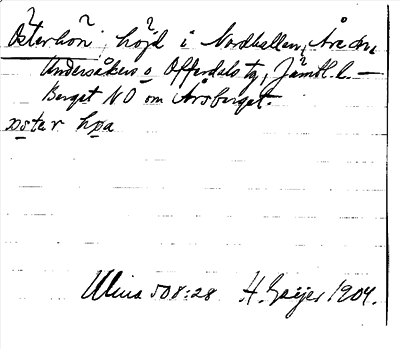 Österhön, höjd i Nordhallen, Åre sn,
Undersåkers o. Offerdals tg, Jämtl. l. —
Berget NO om Åreberget.
öster höa
Ulma 508:28 H. Geijer 1904.